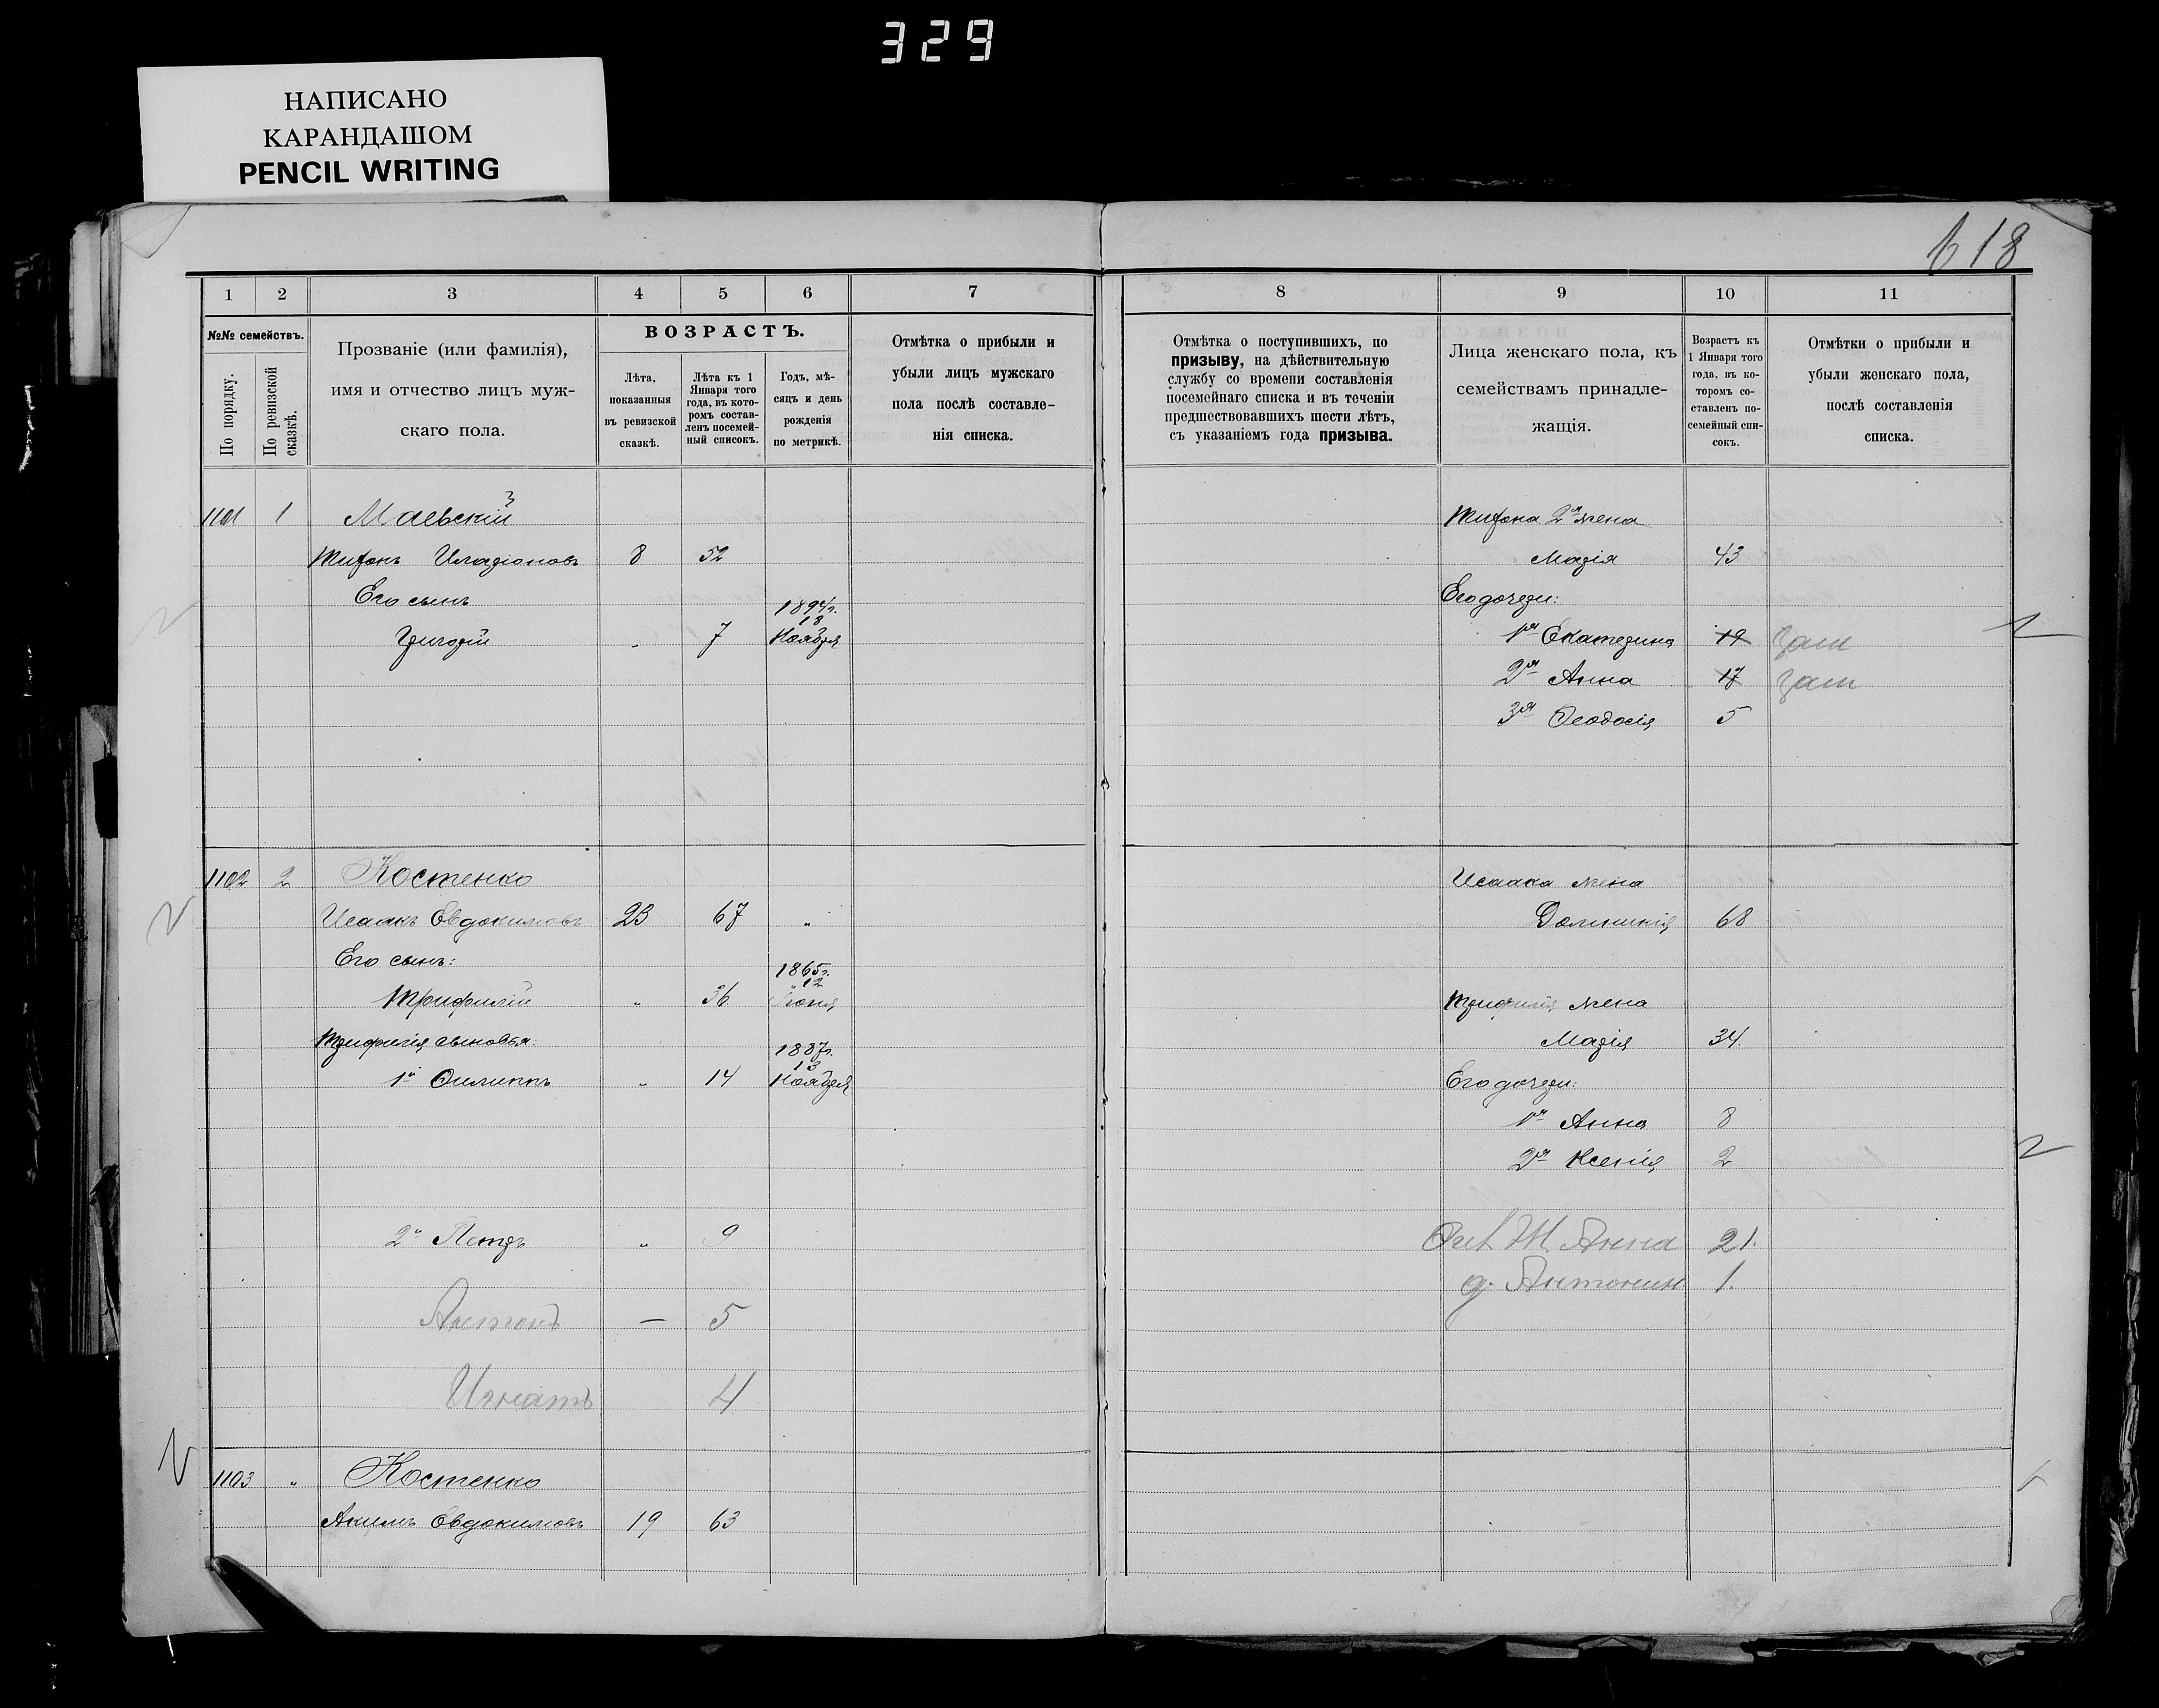 329
НАПИСАНО
КАРАНДАШОМ
PENCIL WRITING
618
1 2 3 4 5 6 7
№№ семействъ.
По порядку.
По ревизской сказкѣ.
Прозваніе (или фамилія),
имя и отчество лицъ муж-
скаго пола.
ВОЗРАСТЪ.
Лѣта,
показанныя
въ ревизской
сказкѣ.
Лѣта къ 1
Января того
года, въ кото-
ромъ состав-
ленъ посемей-
ный списокъ.
Годъ, мѣ-
сяцъ и день
рожденія
по метрикѣ.
Отмѣтка о прибыли и
убыли лицъ мужскаго
пола послѣ составле-
нія списка.
1101 1 Маевскій
Тифонъ 8 52
Его сынъ 1894г.
18
Григорій 7 Ноября
1102 2 Костенко
Исаакъ Евдокимовъ 23 67 „
Его сынъ: 1865г.
12
Трифилій „ 36 Іюня
Трифилія сыновья: 1887г.
13
1й Филиппъ „ 14 Ноября
2й Петръ „ 9
Антонъ — 5
Игнатъ 4
1103 „ Костенко
Акимъ Евдокимовъ 19 63
8 9 10 11
Отмѣтка о поступившихъ, по
призыву, на дѣйствительную
службу со времени составленія
посемейнаго списка и въ теченіи
предшествовавшихъ шести лѣтъ,
съ указаніемъ года призыва.
Лица женскаго пола, къ
семействамъ принадле-
жащія.
Возрастъ къ
1 Января того
года, въ ко-
торомъ со-
ставленъ по-
семейный спи-
сокъ.
Отмѣтки о прибыли и
убыли женскаго пола,
послѣ составленія
списка.
Тифона 2я жена
Марія 43
Его дочери:
1я Екатерина 19 зам
2я Анна 17 зам
3я Феодосія 5
Исаака жена
Домникія 68
Трифилія жена
Марія 34.
Его дочери:
1я Анна 8
2я Ксенія 2
Ж. Анна 21.
д. Антонин 1.